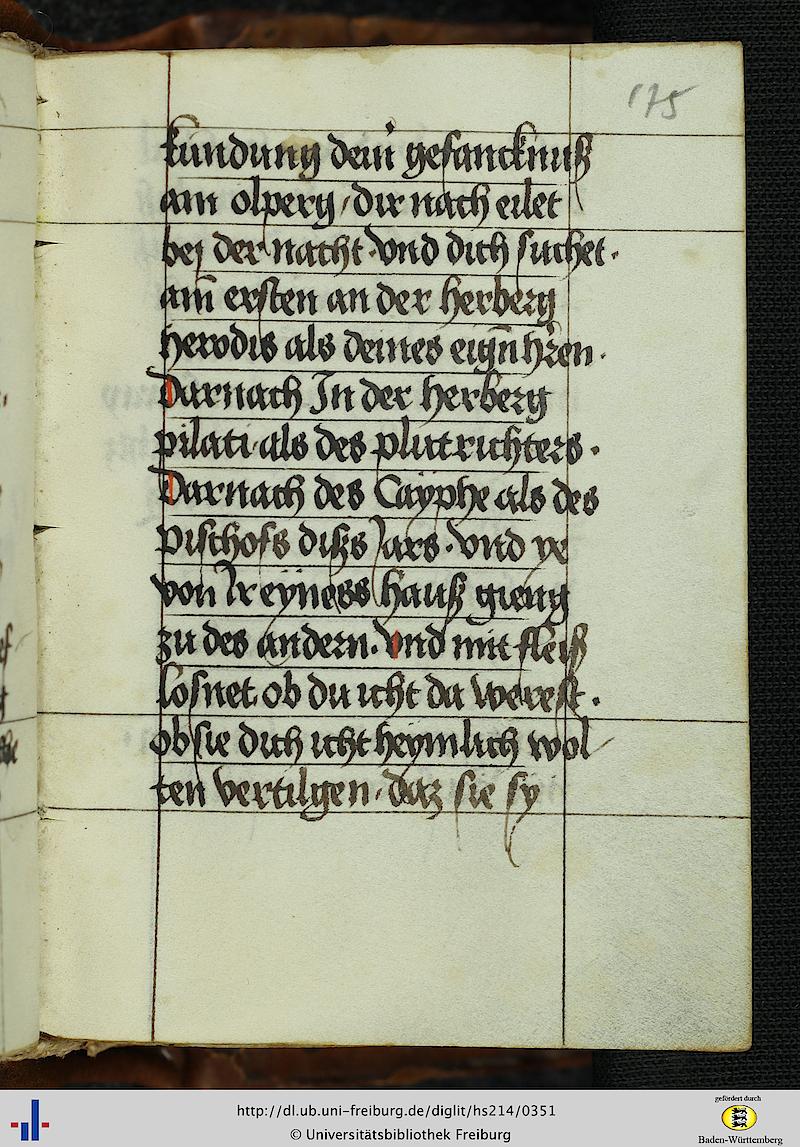 175
kundung deinr gefancknuß
am olperg, dir nach eilet
bej der nacht. vnd dich suchet.
am̄ ersten an der herberg
herodis als deines eign̄ hr̄en.
Darnach In der herberg
pilati. als des plutrichters.
Darnach des Caÿphe als des
Bischofs diß Jars. vnd ye
von Ir eyness hauß gieng
zu des andern. vnd mit fleiß
losnet. ob du icht da werest.
ob sie dich icht heymlich wol
ten vertilgen, daz sie sy
http://dl.ub.uni-freiburg.de/diglit/hs214/0351
© Universitätsbibliothek Freiburg
gefördert durch
Baden-Württemberg